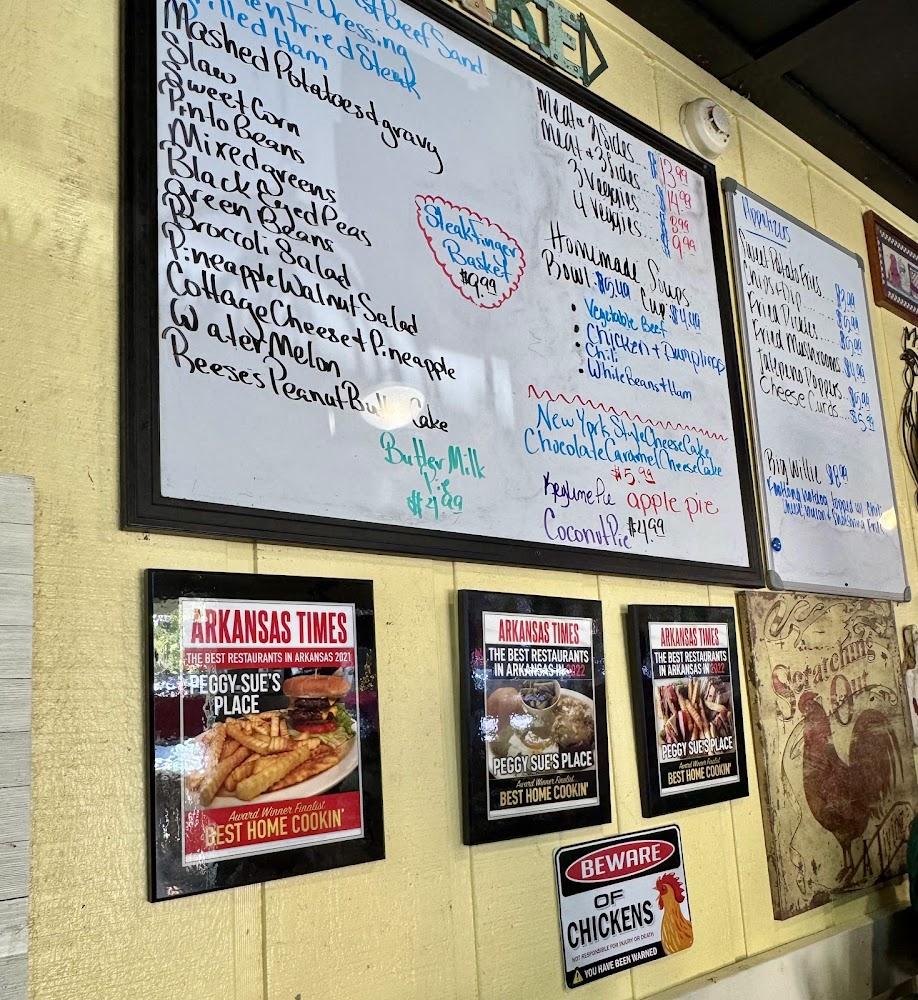 Beef Sand.
Dressing
Fried Steak
Grilled Ham
Mashed Potatoes & gravy
Slaw
Sweet Corn
Pinto Beans
Mixed greens
Black Eyed Peas
green Beans
Broccoli Salad
Pineapple Walnut Salad
Cottage Cheese + Pineapple
Water Melon
Reese's Peanut Cake
Butter Milk
Pie
$4.99
Steak Finger
Basket
$9.99
Meat & 2 Sides... $13.99
Meat & 3 Sides... $14.99
3 veggies... $8.99
4 veggies... $9.99
Homemade Soups
Bowl $5.49 Cup $4.49
• Vegetable Beef
• Chicken + Dumplings
• Chili
• White Beans + Ham
New York Style CheeseCake
Chocolate Caramel CheeseCake
$5.99
Keylime Pie apple pie
Coconut Pie $4.99
Appetizers
Sweet Potato Fries...
Chips + Dip...
Fried Pickles...
Fried Mushrooms...
Jalapeno Poppers...
Cheese Curds... $5.99
Big Willie $8.99
ARKANSAS TIMES
THE BEST RESTAURANTS IN ARKANSAS 2021
PEGGY SUE'S
PLACE
Award Winner Finalist
BEST HOME COOKIN'
ARKANSAS TIMES
THE BEST RESTAURANTS
IN ARKANSAS IN 2022
PEGGY SUE'S PLACE
Award Winner Finalist
BEST HOME COOKIN'
ARKANSAS TIMES
THE BEST RESTAURANTS
IN ARKANSAS IN 2022
PEGGY SUE'S PLACE
Award Winner Finalist
BEST HOME COOKIN'
Scratching
Out
BEWARE
OF
CHICKENS
NOT RESPONSIBLE FOR INJURY OR DEATH
YOU HAVE BEEN WARNED